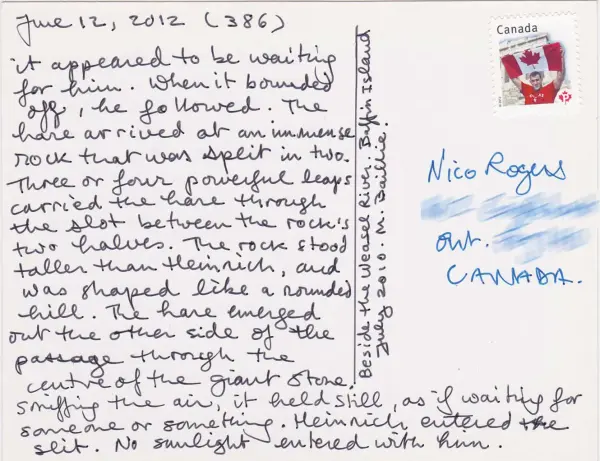 June 12, 2012 (386)
it appeared to be waiting
for him. When it bounded
off, he followed. The
hare arrived at an immense
rock that was split in two.
Three or four powerful leaps
carried the hare through
the slot between the rock's
two halves. The rock stood
taller than Heinrich, and
was shaped like a rounded
hill. The hare emerged
out the other side of the
passage through the
centre of the giant stone.
Sniffing the air, it held still, as if waiting for
someone or something. Heinrich entered the
slit. No sunlight entered with him.
Beside the Weasel River. Baffin Island
July 2010. M. Baillie.
Canada
P
Nico Rogers
Ont.
CANADA.